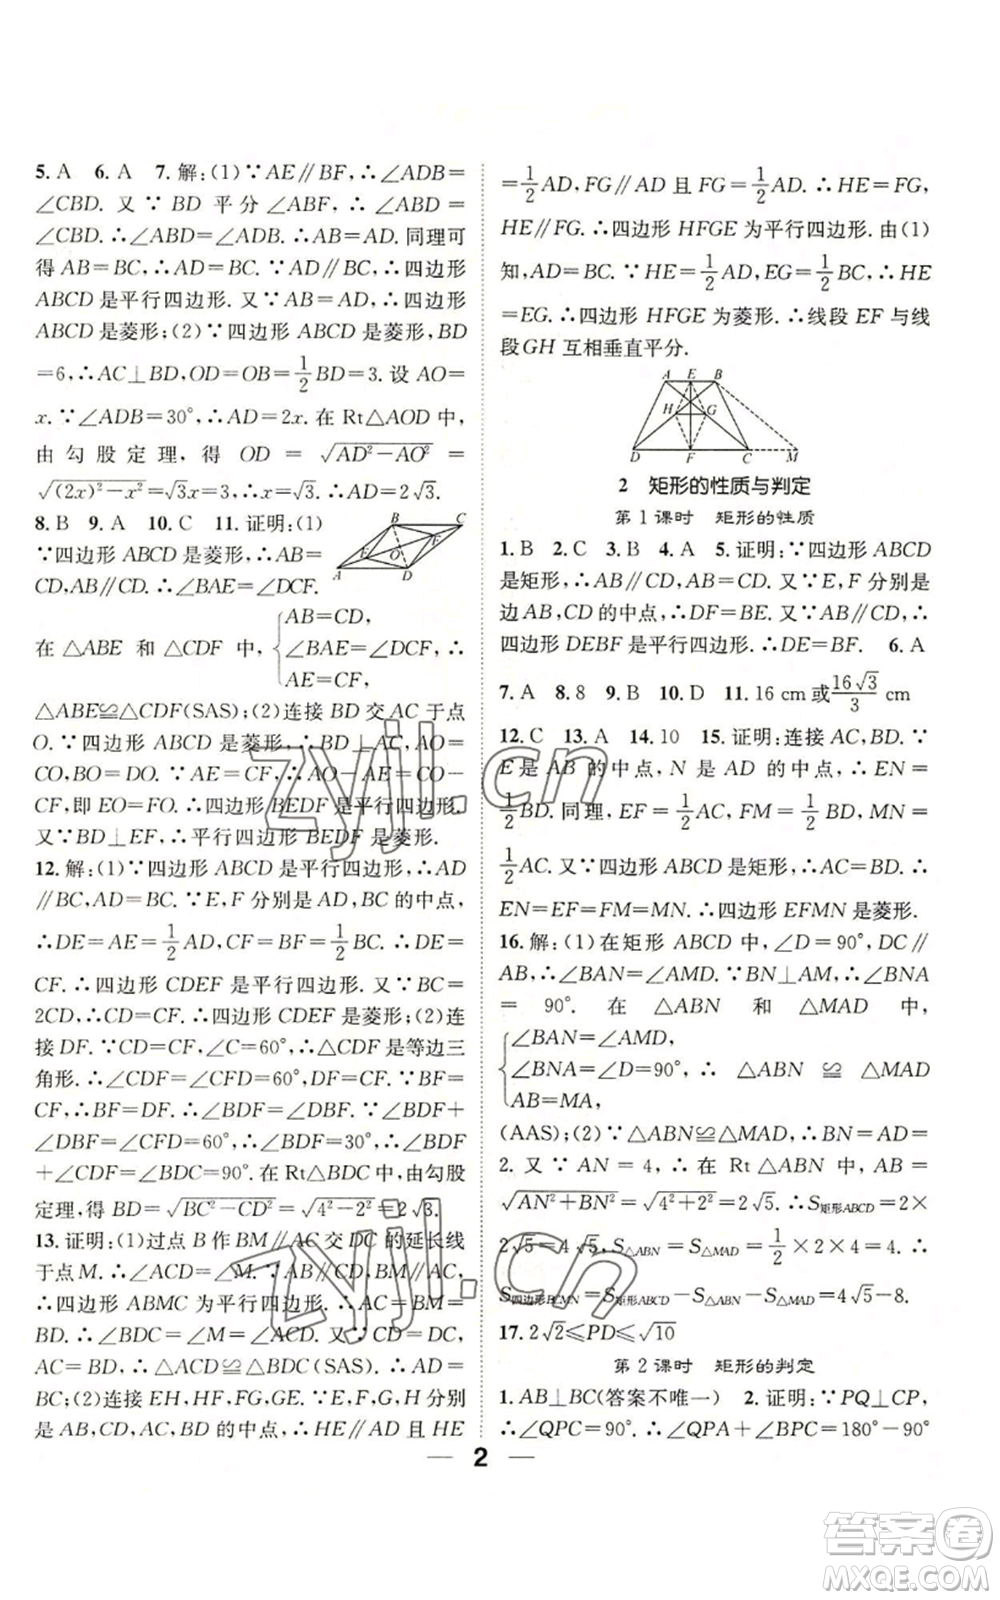 5. A　6. A　7. 解:(1)∵AE∥BF,∴∠ADB=
∠CBD. 又∵BD 平分∠ABF,∴∠ABD=
∠CBD. ∴∠ABD=∠ADB. ∴AB=AD. 同理可
得 AB=BC,∴AD=BC. ∵AD∥BC,∴四边形
ABCD 是平行四边形. 又∵AB=AD,∴四边形
ABCD 是菱形;(2)∵四边形 ABCD 是菱形,BD
=6,∴AC⊥BD,OD=OB=1/2BD=3. 设 AO=
x. ∵∠ADB=30°,∴AD=2x. 在 Rt△AOD 中,
由勾股定理,得 OD=√(AD²−AO²)=
√((2x)²−x²)=√3x=3,∴x=√3. ∴AD=2√3.
8. B　9. A　10. C　11. 证明:(1)
∵四边形 ABCD 是菱形,∴AB=
CD,AB∥CD. ∴∠BAE=∠DCF.
B C E F O A D
在△ABE 和△CDF 中,{AB=CD, ∠BAE=∠DCF, AE=CF, ∴
△ABE≌△CDF(SAS);(2)连接 BD 交 AC 于点
O. ∵四边形 ABCD 是菱形,∴BD⊥AC,AO=
CO,BO=DO. ∵AE=CF,∴AO−AE=CO−
CF,即 EO=FO. ∴四边形 BEDF 是平行四边形.
又∵BD⊥EF,∴平行四边形 BEDF 是菱形.
12. 解:(1)∵四边形 ABCD 是平行四边形,∴AD
∥BC,AD=BC. ∵E,F 分别是 AD,BC 的中点,
∴DE=AE=1/2AD,CF=BF=1/2BC. ∴DE=
CF. ∴四边形 CDEF 是平行四边形. 又∵BC=
2CD,∴CD=CF. ∴四边形 CDEF 是菱形;(2)连
接 DF. ∵CD=CF,∠C=60°,∴△CDF 是等边三
角形. ∴∠CDF=∠CFD=60°,DF=CF. ∵BF=
CF,∴BF=DF. ∴∠BDF=∠DBF. ∵∠BDF+
∠DBF=∠CFD=60°,∴∠BDF=30°,∴∠BDF
+∠CDF=∠BDC=90°. 在 Rt△BDC 中,由勾股
定理,得 BD=√(BC²−CD²)=√(4²−2²)=2√3.
13. 证明:(1)过点 B 作 BM∥AC 交 DC 的延长线
于点 M. ∴∠ACD=∠M. ∵AB∥DC,
∴四边形 ABMC 为平行四边形. ∴AC=BM=
BD. ∴∠BDC=∠M=∠ACD. 又∵CD=DC,
AC=BD,∴△ACD≌△BDC(SAS). ∴AD=
BC;(2)连接 EH,HF,FG,GE. ∵E,F,G,H 分别
是 AB,CD,AC,BD 的中点,∴HE∥AD 且 HE
=1/2AD,FG∥AD 且 FG=1/2AD. ∴HE=FG,
HE∥FG. ∴四边形 HFGE 为平行四边形. 由(1)
知,AD=BC. ∵HE=1/2AD,EG=1/2BC,∴HE
=EG. ∴四边形 HFGE 为菱形. ∴线段 EF 与线
段 GH 互相垂直平分.
A E B H G D F C M
2　矩形的性质与判定
第 1 课时　矩形的性质
1. B　2. C　3. B　4. A　5. 证明:∵四边形 ABCD
是矩形,∴AB∥CD,AB=CD. 又∵E,F 分别是
边 AB,CD 的中点,∴DF=BE. 又∵AB∥CD,∴
四边形 DEBF 是平行四边形. ∴DE=BF.　6. A
7. A　8. 8　9. B　10. D　11. 16 cm 或16√3/3 cm
12. C　13. A　14. 10　15. 证明:连接 AC,BD. ∵
E 是 AB 的中点,N 是 AD 的中点,∴EN=
1/2BD. 同理,EF=1/2AC,FM=1/2BD,MN=
1/2AC. 又∵四边形 ABCD 是矩形,∴AC=BD. ∴
EN=EF=FM=MN. ∴四边形 EFMN 是菱形.
16. 解:(1)在矩形 ABCD 中,∠D=90°,DC∥
AB,∴∠BAN=∠AMD. ∵BN⊥AM,∴∠BNA
=90°. 在△ABN 和△MAD 中,
{∠BAN=∠AMD, ∠BNA=∠D=90°, AB=MA, ∴△ABN≌△MAD
(AAS);(2)∵△ABN≌△MAD,∴BN=AD=
2. 又∵AN=4,∴在 Rt△ABN 中,AB=
√(AN²+BN²)=√(4²+2²)=2√5. ∴S矩形ABCD=2×
2√5=4√5,S△ABN=S△MAD=1/2×2×4=4. ∴
S四边形BCMN=S矩形ABCD−S△ABN−S△MAD=4√5−8.
17. 2√2≤PD≤√10
第 2 课时　矩形的判定
1. AB⊥BC(答案不唯一)　2. 证明:∵PQ⊥CP,
∴∠QPC=90°. ∴∠QPA+∠BPC=180°−90°
— 2 —
zyjl.cn
zyjl.cn
答案卷
MXQE.COM